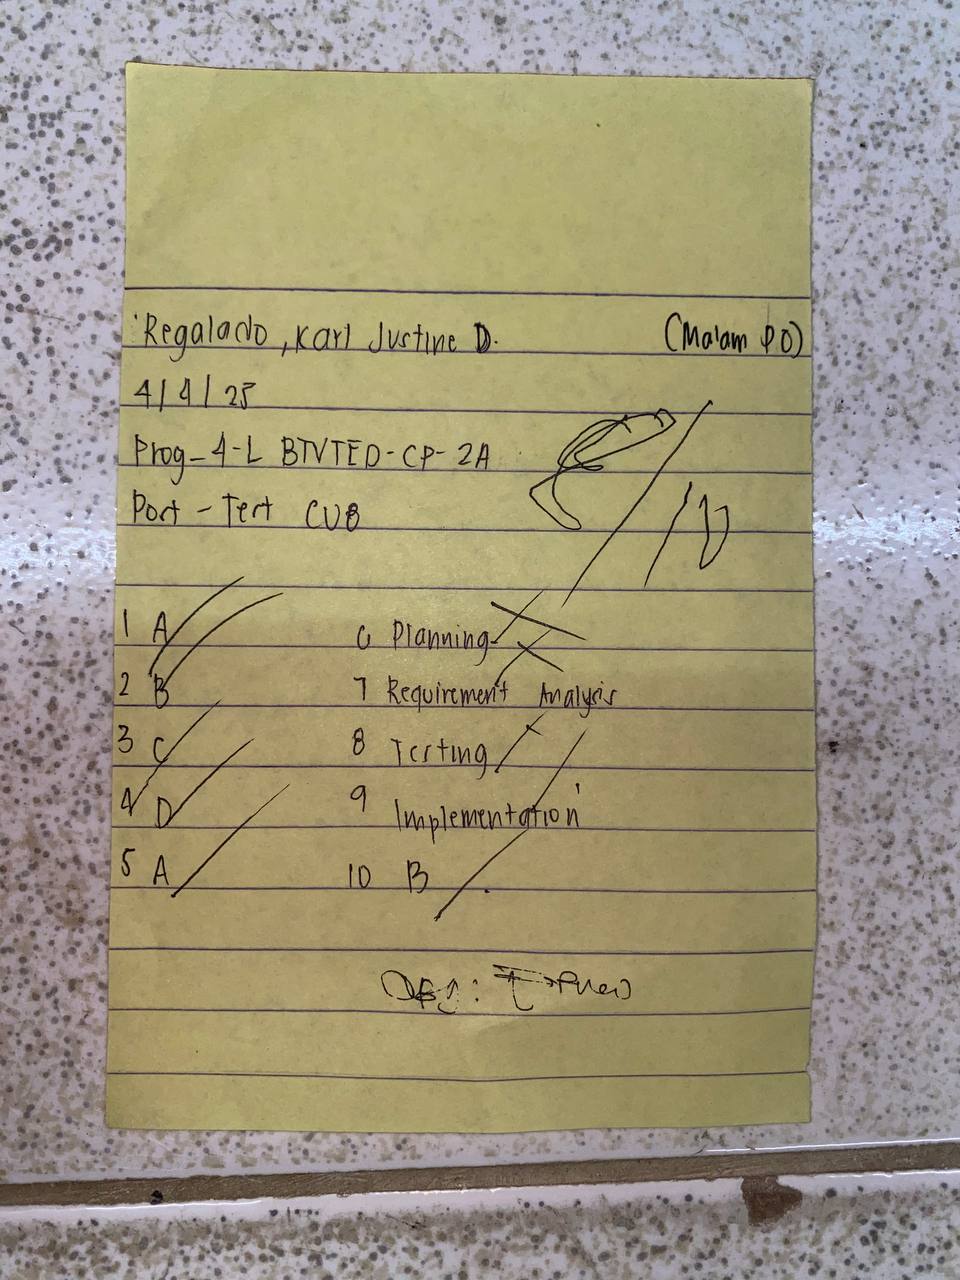 Regalado, Karl Justine D. (Ma'am PO)
4/4/25
Prog-4-L BTVTED-CP-2A
Port-Tert CU8
8/10
1 A
2 B
3 C
4 D
5 A
6 Planning
7 Requirement Analysis
8 Testing
9 Implementation
10 B